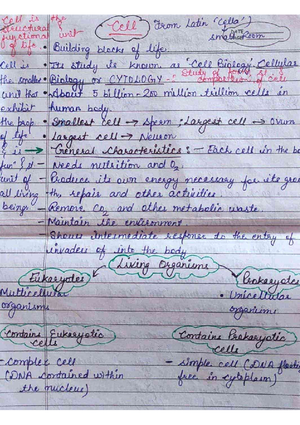 Cell is the
structural
functional unit
of life
Cell is
the smallest
unit that
exhibit
the prop
of life
It is
fun. & st
unit of
all living
beings
Cell
From Latin "Cella"
small room
• Building blocks of life.
• Its study is known as 'Cell Biology, Cellular
Biology or CYTOLOGY
Study of
composition of cell
• About 5 billion - 200 million trillion cells in
human body.
• Smallest cell → Sperm; Largest cell → Ovum
• Largest cell → Neuron
- General characteristics: - Each cell in the bo
- Needs nutrition and O2
- Produce its own energy necessary for its grow
th, repair and other activities
- Remove CO2 and other metabolic waste
- Maintain the environment
- Shows intermediate response to the entry of
invaders of into the body.
Living Organisms
Eukaryotes
Prokaryotes
Multicellular
organisms
• Unicellular
organisms
Contains Eukaryotic
cells
Contains Prokaryotic
cells
- complex cell
(DNA contained within
the nucleus)
- simple cell (DNA floating
free in cytoplasm)